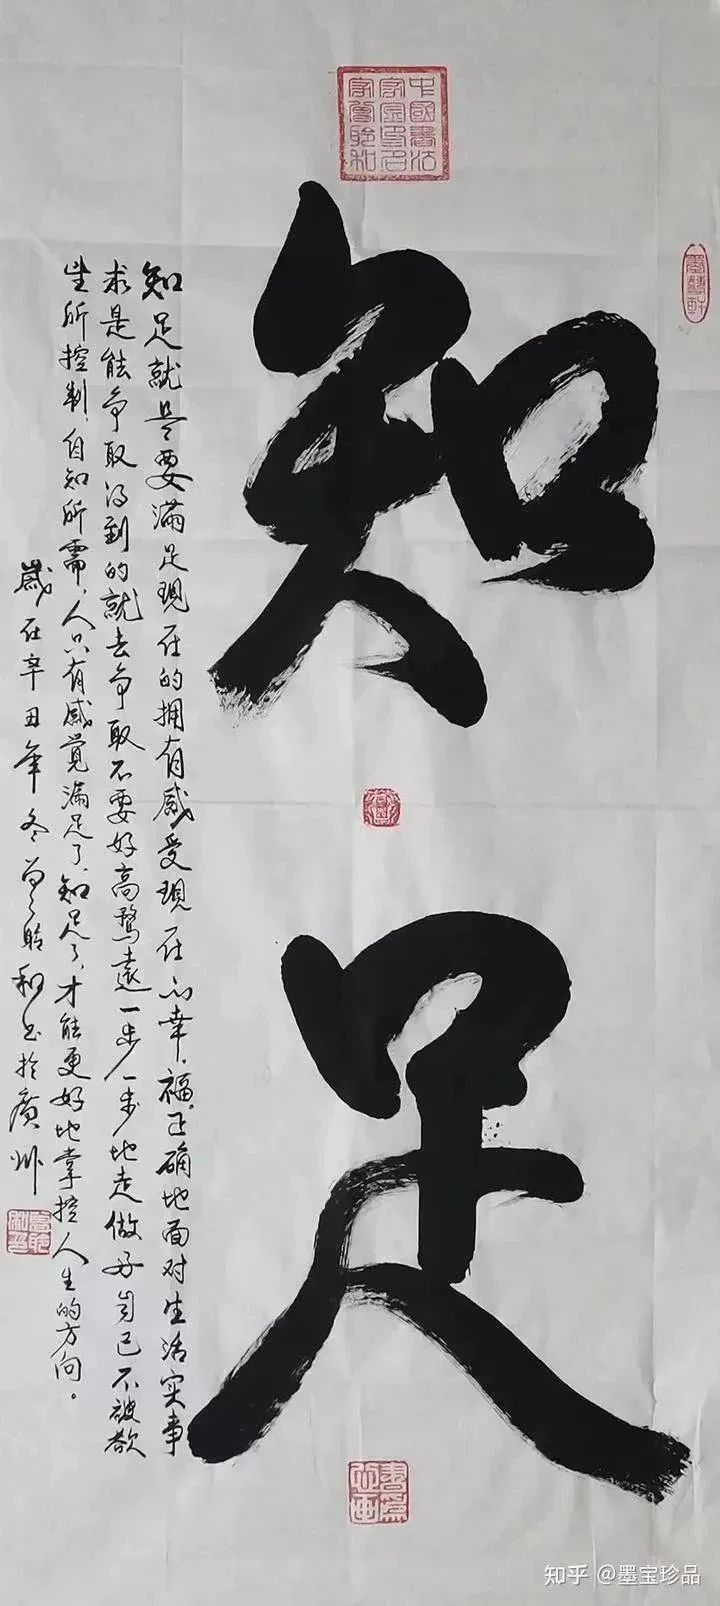 中國書法家名家曾聆和
知足
知足就是要滿足現在的拥有感受現在的幸福。正确地面对生活实事
求是能争取得到的就去争取不要好高鶩遠一步一步地走做好自己不被欲
望所控制，自知所需，人只有感覚滿足了，知足了，才能更好地掌控人生的方向。
歲在辛丑年冬曾聆和书於廣州
書為心画
知乎 @墨宝珍品